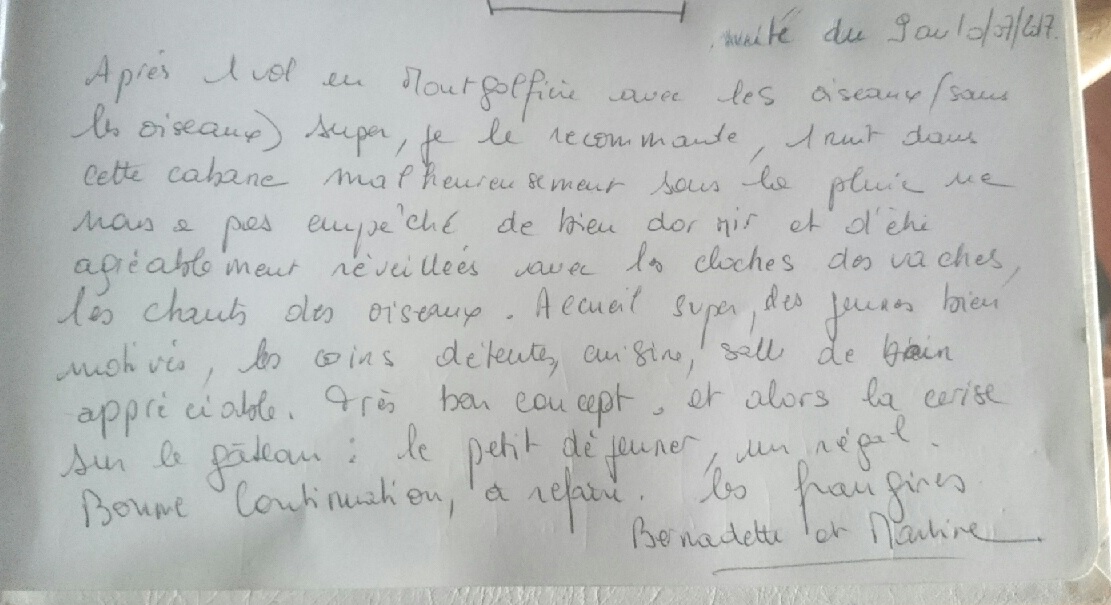 nuité du 9 au 10/07/2017.
Après 1 vol en Montgolfière avec les oiseaux (sans
les oiseaux) super, je le recommande, 1 nuit dans
cette cabane malheureusement sous la pluie ne
nous a pas empêché de bien dormir et d'être
agréablement réveillées avec les cloches des vaches,
les chants des oiseaux. Accueil super, des jeunes bien
motivés, les coins détente, cuisine, salle de bain
appréciable. Très bon concept, et alors la cerise
sur le gâteau : le petit déjeuner, un régal.
Bonne Continuation, à refaire. les frangines
Bernadette et Martine